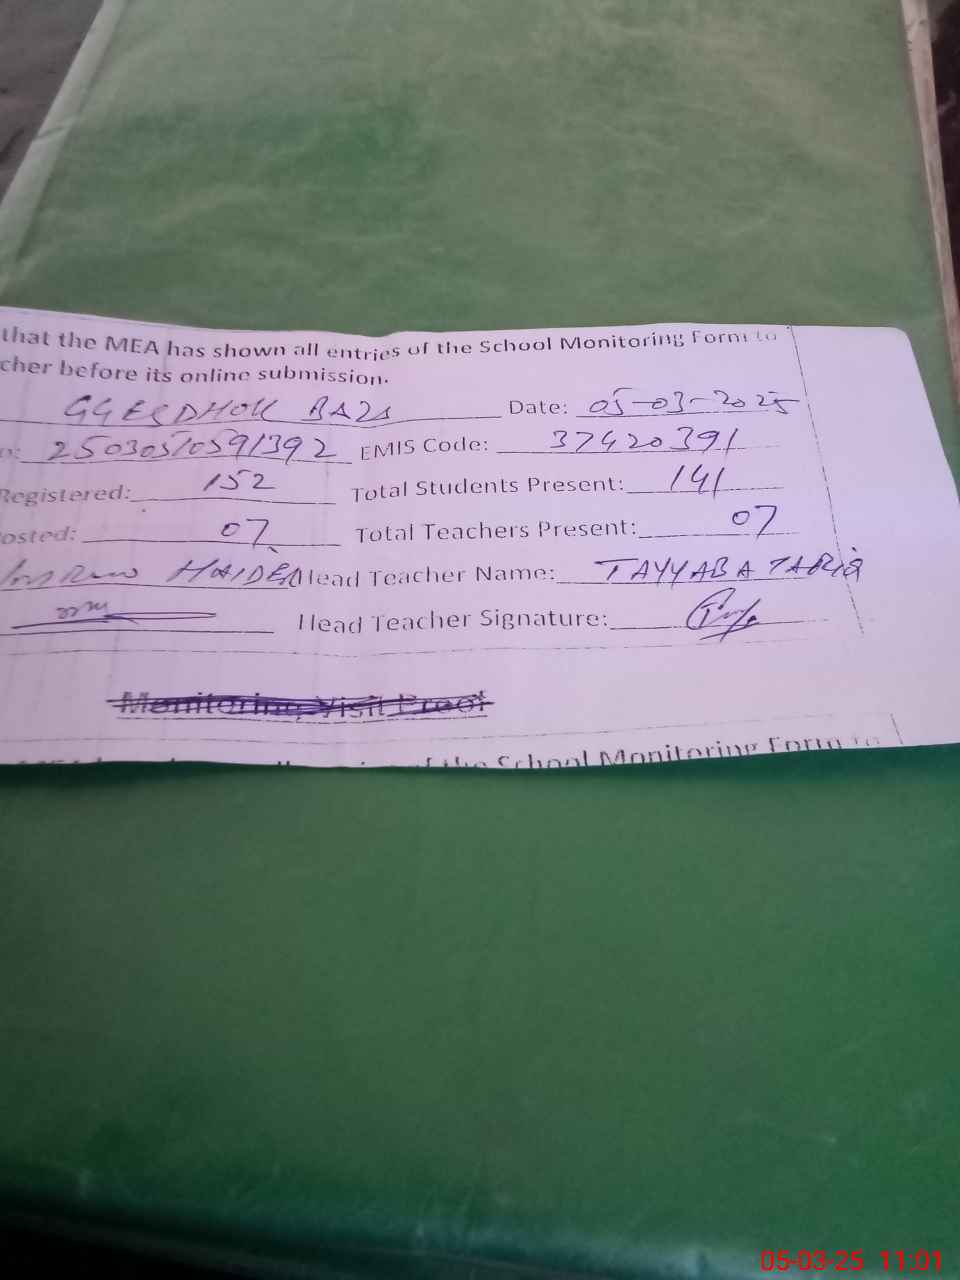 that the MEA has shown all entries of the School Monitoring Form to
cher before its online submission.
GGES DHOK BAZA Date: 05-03-2025
o: 25030510591392 EMIS Code: 37420391
Registered: 152 Total Students Present: 141
osted: 07 Total Teachers Present: 07
HAIDER Head Teacher Name: TAYYABA TARIQ
Head Teacher Signature:
Monitoring Visit Proof
of the School Monitoring Form to
05-03-25 11:01